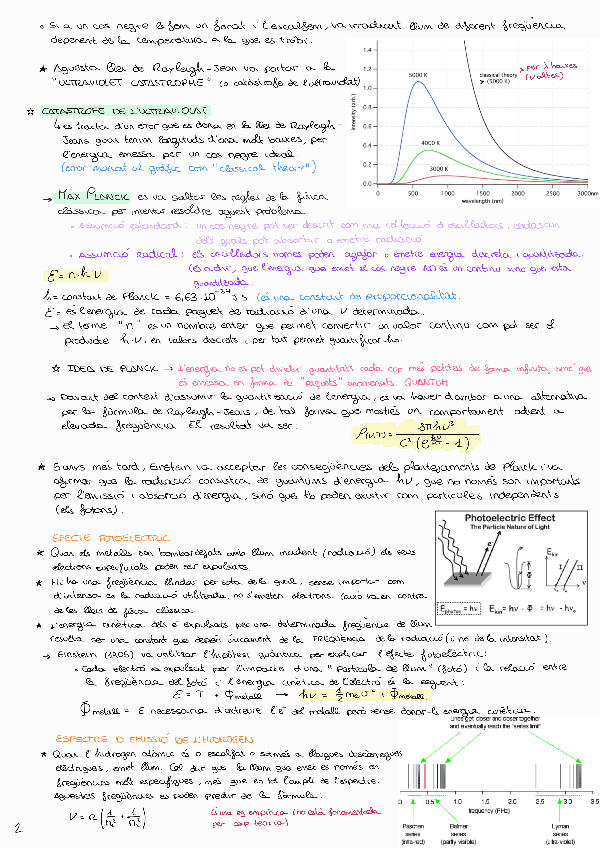 ◦ Si a un cos negre li fem un forat i l'escalfem, va irradiant llum de diferent freqüència
depenent de la temperatura a la que es trobi.
★ Aquesta llei de Rayleigh-Jean va portar a la
"ULTRAVIOLET CATASTROPHE" (o catàstrofe de l'ultraviolat)
☆ CATÀSTROFE DE L'ULTRAVIOLAT
↳ es tracta d'un error que es dona en la llei de Rayleigh-
Jeans quan tenim longituds d'ona molt baixes, per
l'energia emesa per un cos negre ideal
(error marcat al gràfic com "classical theory")
Intensity (arb.)
1.4
1.2
1.0
0.8
0.6
0.4
0.2
0.0
5000 K
4000 K
3000 K
classical theory
(5000 K)
per λ baixes
0
500
1000
1500
2000
2500
3000nm
wavelength (nm)
→ MAX PLANCK es va saltar les regles de la física
clàssica per intentar resoldre aquest problema.
◦ Assumció estàndard: un cos negre pot ser descrit com una col·lecció d'oscil·ladors, cadascun
dels quals pot absorbir o emetre radiació
◦ Assumció Radical: els oscil·ladors només poden agafar o emetre energia discreta i quantitzada.
(és a dir, que l'energia que emet el cos negre NO és un continu sino que està
quantitzada.
E = n·h·ν
h = constant de Planck = 6,63·10⁻³⁴ J s (és una constant de proporcionalitat.
E = és l'energia de cada paquet de radiació d'una ν determinada.
→ El terme "n" és un nombre enter que permet convertir un valor continu com pot ser el
producte h·ν, en valors discrets i per tant permet quantificar-ho.
☆ IDEA DE PLANCK → L'energia no es pot dividir quantitats cada cop més petites de forma infinita, sinó que
és emessa en forma de "paquets" anomenats QUANTUM
→ Davant del context d'assumir la quantització de l'energia, es va haver d'arribar a una alternativa
per la fórmula de Rayleigh-Jeans, de tal forma que mostrés un comportament adient a
elevada freqüència. El resultat va ser:
★ 5 anys més tard, Einstein va acceptar les conseqüències dels plantejaments de Planck i va
afirmar que la radiació consistia de quantums d'energia hν, que no només son importants
per l'emissió i absorció d'energia, sinó que tb poden existir com partícules independents
(els fotons).
EFECTE FOTOELÈCTRIC
★ Quan els metalls son bombardejats amb llum incident (radiació) els seus
electrons superficials poden ser expulsats.
★ Hi ha una freqüència llindar per sota de la qual, sense importar com
d'intensa és la radiació utilitzada, no s'emeten electrons. (això va en contra
de les lleis de física clàssica.
★ L'energia cinètica dels e⁻ expulsats per una determinada freqüència de llum
resulta ser una constant que depèn únicament de la FREQÜÈNCIA de la radiació (i no de la intensitat).
Photoelectric Effect
The Particle Nature of Light
e⁻
Φ
E_kin
I
II
ν
E_photon = hν
E_kin = hν - Φ = hν - hν₀
→ Einstein (1905) va utilitzar l'hipòtesi quàntica per explicar l'efecte fotoelèctric:
◦ Cada electró és expulsat per l'impacte d'una "Partícula de llum" (fotó) i la relació entre
la freqüència del fotó i l'energia cinètica de l'electró és la següent:
E = T + Φmetall → hν = ½ mₑ v² + Φmetall
Φmetall = E necessària d'extreure l'e⁻ del metall però sense donar-li energia cinètica.
ESPECTRE D'EMISSIÓ DE L'HIDROGEN
★ Quan l'hidrogen atòmic és o escalfat o sotmès a llargues descàrregues
elèctriques, emet llum. Cal dir que la llum que emet és només en
freqüències molt específiques, més que en tot l'ampli de l'espectre.
Aquestes freqüències es poden predir de la fórmula:
És una eq empírica (no està fonamentada
per cap teoria)
Lines get closer and closer together
and eventually reach the "series limit"
0
0.5
1.0
1.5
2.0
2.5
3.0
3.5
frequency (PHz)
Paschen
series
(infra-red)
Balmer
series
(partly visible)
Lyman
series
(ultra-violet)
2